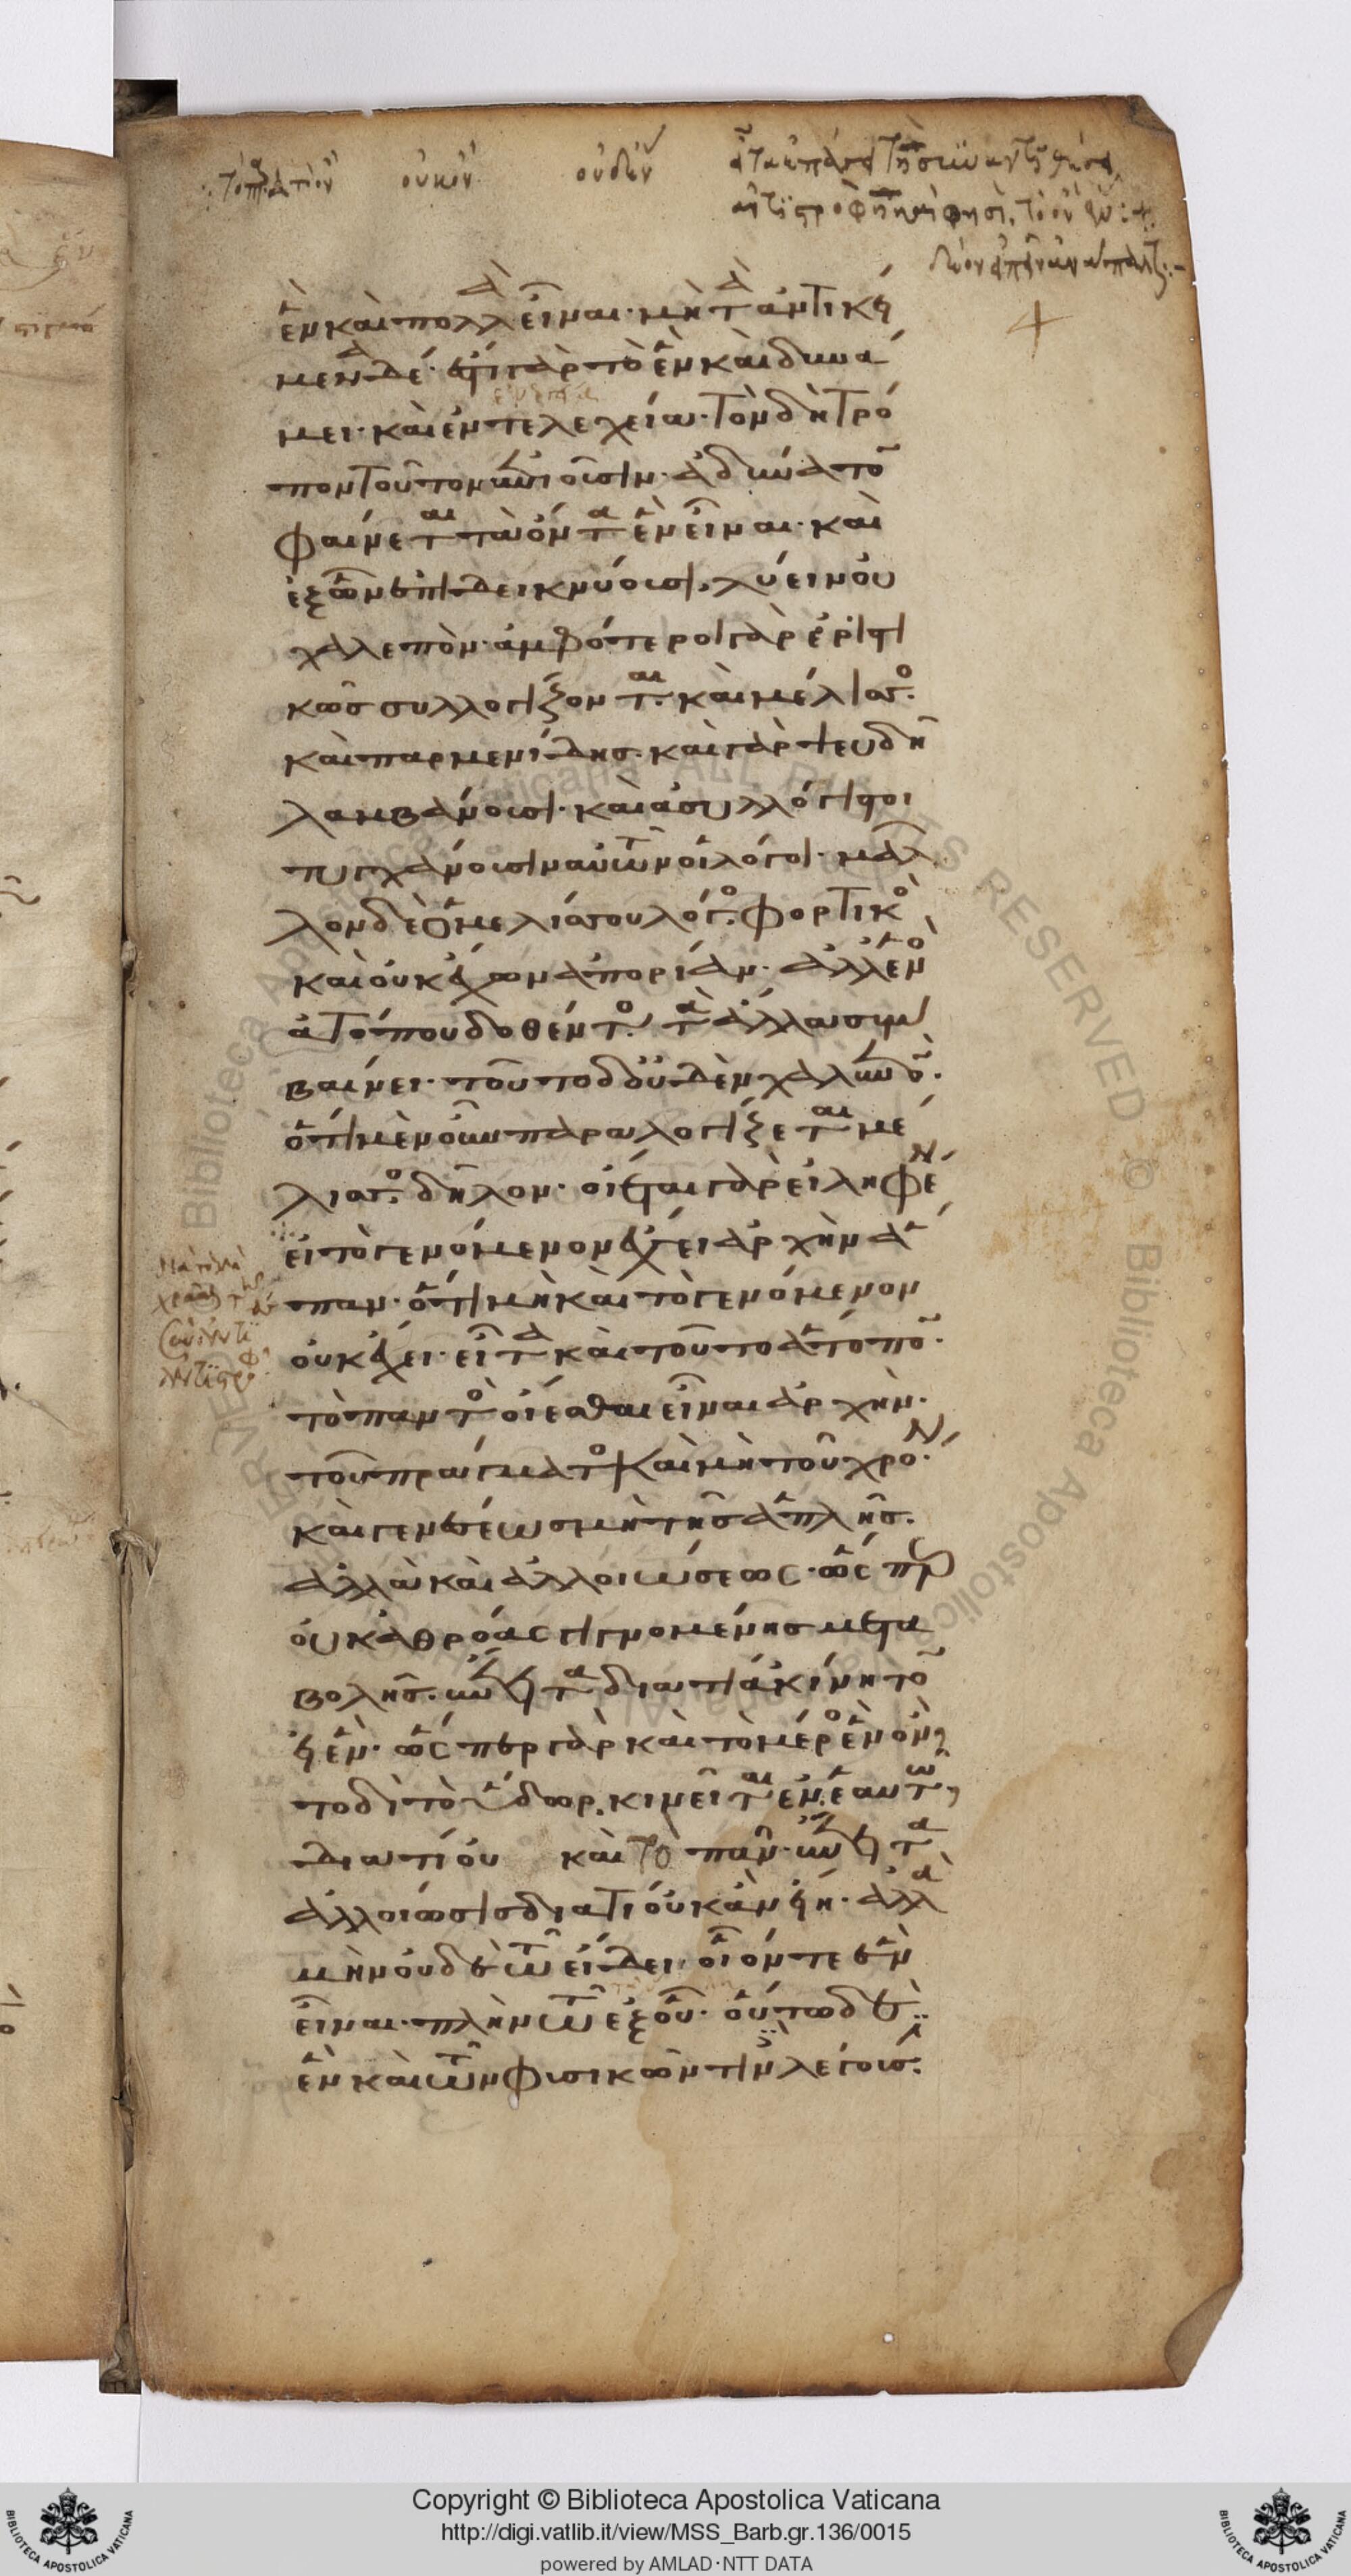 οὐκοῦν οὐδὲν
ἓν καὶ πολλὰ εἶναι· μὴ τὰ ἀντικεί
μενα δέ· ἔστι γὰρ τὸ ἓν καὶ δυνά
μει· καὶ ἐντελεχεία· τὸν δὴ τρό
πον τοῦτον ἐπιοῦσιν· ἀδύνατον
φαίνεται τὰ ὄντα ἓν εἶναι· καὶ
ἐξ ὧν ἐπιδεικνύουσι, λύειν οὐ
χαλεπόν· ἀμφότεροι γὰρ ἐριστι
κῶς συλλογίζονται. καὶ μέλισσος.
καὶ παρμενίδης. καὶ γὰρ ψευδῆ
λαμβάνουσι· καὶ ἀσυλλόγιστοι
τυγχάνουσιν αὐτῶν οἱ λόγοι· μᾶλ
λον δὲ ὁ μελίσσου λόγος. φορτικὸς
καὶ οὐκ ἔχων ἀπορίαν· ἀλλ' ἑνὸς
ἀτόπου δοθέντος. τὰ ἄλλα συμ
βαίνει· τοῦτο δ' οὐδὲν χαλεπόν.
ὅτι μὲν οὖν παραλογίζεται μέ
λισσος. δῆλον· οἴεται γὰρ εἰληφέναι
εἰ τὸ γενόμενον ἔχει ἀρχὴν ἅ
παν· ὅτι μὴ καὶ τὸ γενόμενον
οὐκ ἔχει· εἶτα καὶ τοῦτο ἄτοπον.
τὸ παντὸς οἴεσθαι εἶναι ἀρχήν.
τοῦ πράγματος καὶ μὴ τοῦ χρόνου.
καὶ γενέσεως μὴ τῆς ἁπλῆς.
ἀλλὰ καὶ ἀλλοιώσεως· ὥσπερ
οὐκ ἀθρόας γιγνομένης μετα
βολῆς. ἔπειτα διατί ἀκίνητον
εἰ ἕν· ὥσπερ γὰρ καὶ τὸ μέρος ἓν ὂν
τοδὶ τὸ ὕδωρ. κινεῖται ἐν ἑαυτῷ,
διατί οὐ καὶ τὸ πᾶν· ἔπειτα
ἀλλοίωσις διατί οὐκ ἂν εἴη· ἀλλὰ
μὴν οὐδὲ τῶ εἴδει οἷόν τε ἓν
εἶναι· πλὴν τῶ ἐξ οὗ· οὕτω δὲ
ἓν καὶ τῶν φυσικῶν τινὲς λέγουσι.
Copyright © Biblioteca Apostolica Vaticana
http://digi.vatlib.it/view/MSS_Barb.gr.136/0015
powered by AMLAD·NTT DATA